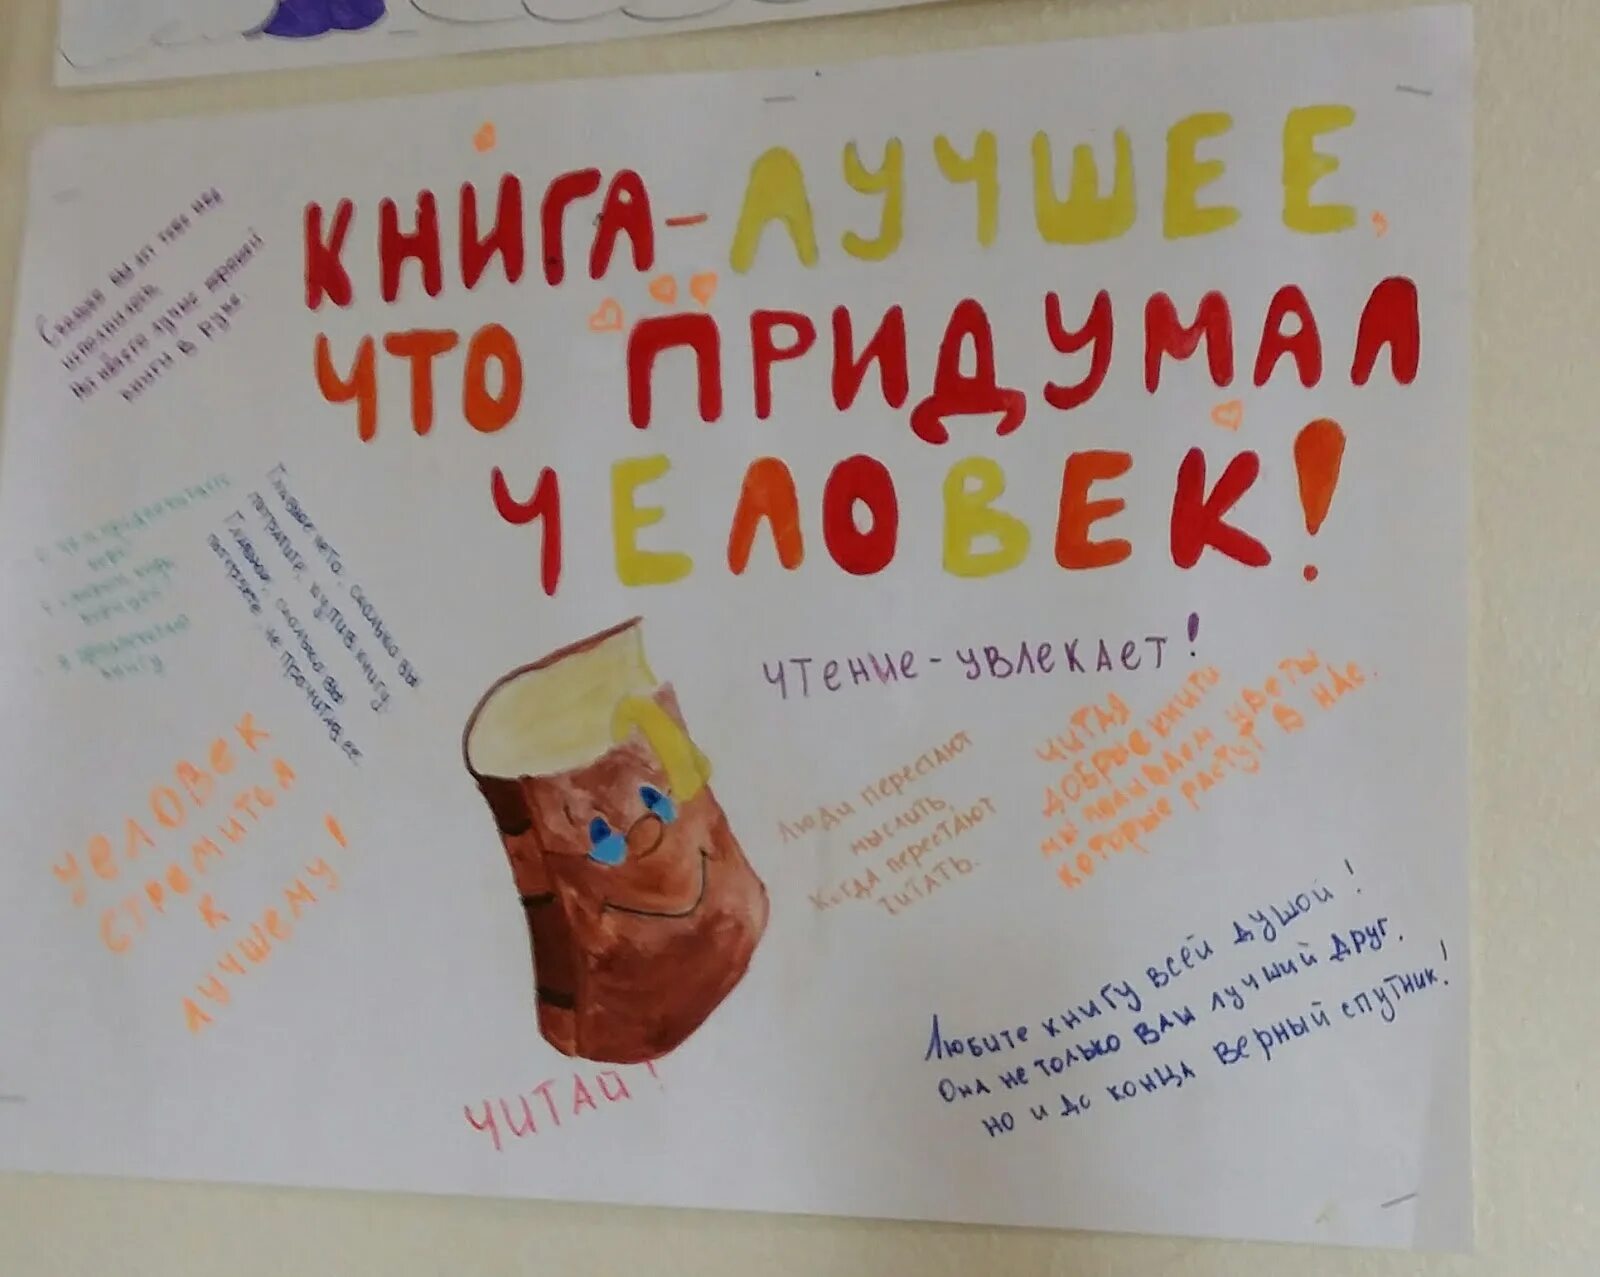 КНИГА - ЛУЧШЕЕ,
ЧТО ПРИДУМАЛ
ЧЕЛОВЕК!
Сколько бы лет тебе ни
исполнилось,
книги в руке.
Главное не то, сколько вы
потратите, купив книгу.
Главное, сколько вы
потеряете, не прочитав ее.
книгу
ЧЕЛОВЕК
СТРЕМИТСЯ
К
ЛУЧШЕМУ!
ЧТЕНИЕ - УВЛЕКАЕТ!
ЛЮДИ ПЕРЕСТАЮТ
МЫСЛИТЬ
КОГДА ПЕРЕСТАЮТ
ЧИТАТЬ.
ЧИТАЯ
ДОБРЫЕ КНИГИ
МЫ ПОЛИВАЕМ ЦВЕТЫ
КОТОРЫЕ РАСТУТ В НАС.
ЛЮБИТЕ КНИГУ ВСЕЙ ДУШОЙ!
ОНА НЕ ТОЛЬКО ВАШ ЛУЧШИЙ ДРУГ.
НО И ДО КОНЦА ВЕРНЫЙ СПУТНИК!
ЧИТАЙ!